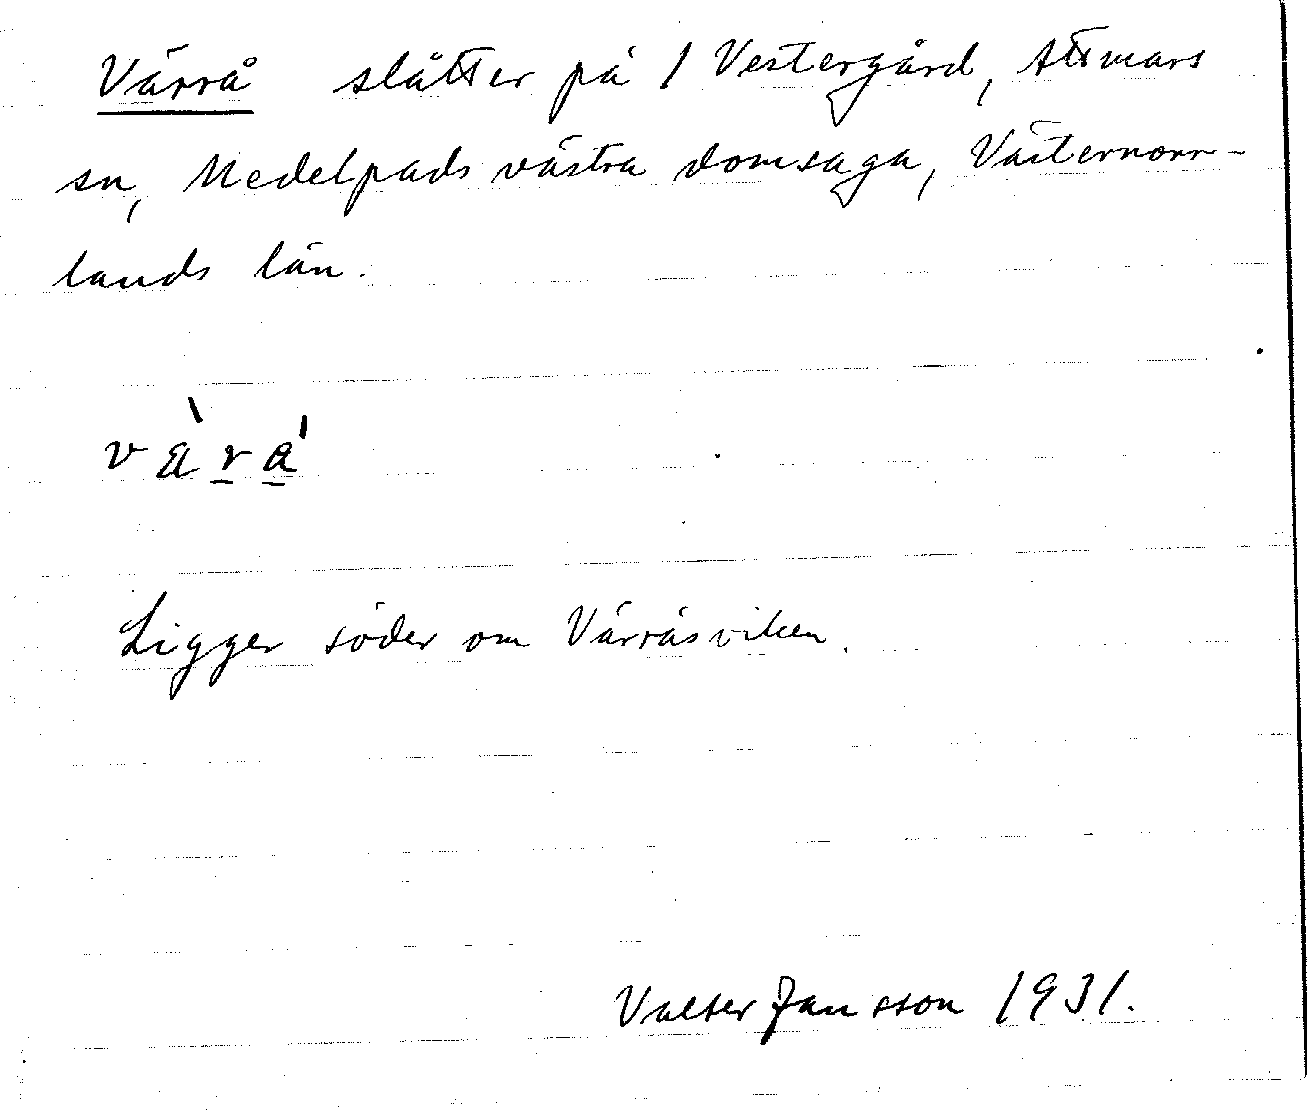 Värrå slåtter på 1 Vestergård, Attmars
sn, Medelpads västra domsaga, Västernorr-
lands län.
Ligger söder om Värråsviken.
Valter Jansson 1931.